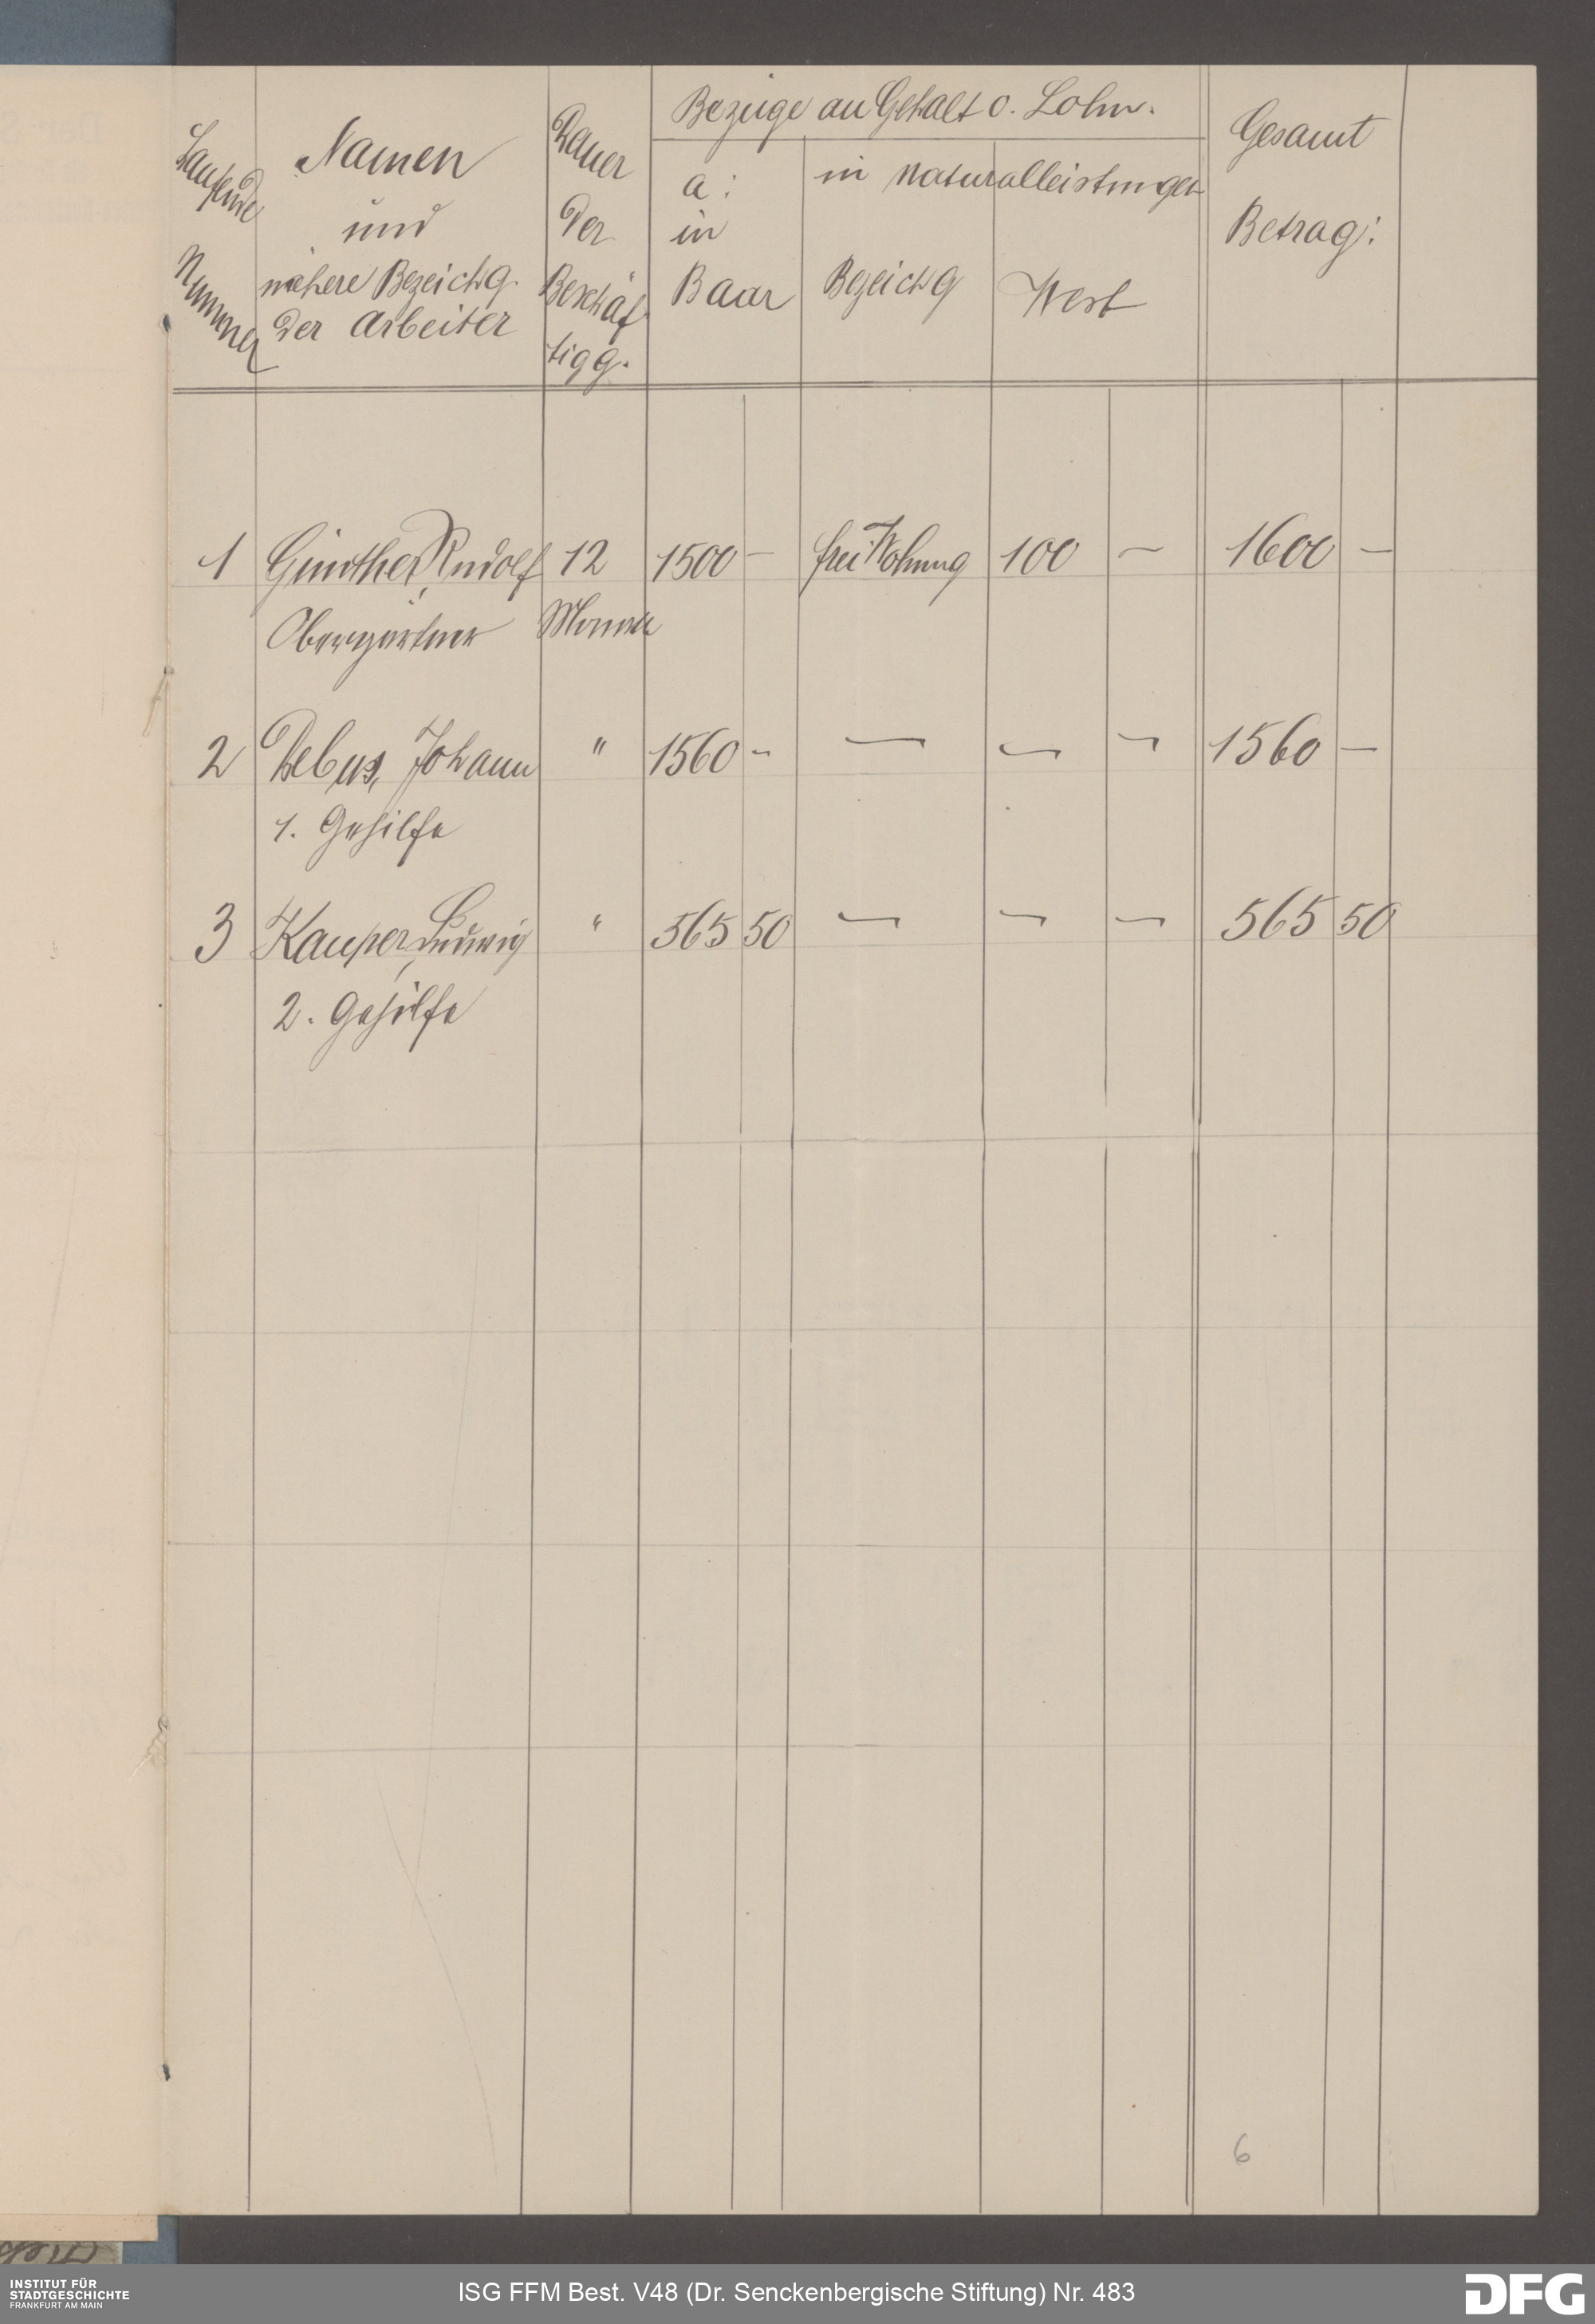 Laufende
Nummer
Namen
und
nähere Bezeichg.
der Arbeiter
Dauer
der
Beschäf
tigg.
Bezüge an Gehalt o. Lohn.
a:
in
Baar
in Naturalleistungen
Bezeichg
Wert
Gesamt
Betrag:
1 Günther, Rudolf 12 1500 — frei Wohnung 100 — 1600 —
Obergärtner Monate
2 Debus, Johann " 1560 — — — — 1560 —
1. Gehilfe
3 Kauper, Ludwig " 565 50 — — — 565 50
2. Gehilfe
6
INSTITUT FÜR
STADTGESCHICHTE
FRANKFURT AM MAIN
ISG FFM Best. V48 (Dr. Senckenbergische Stiftung) Nr. 483
DFG